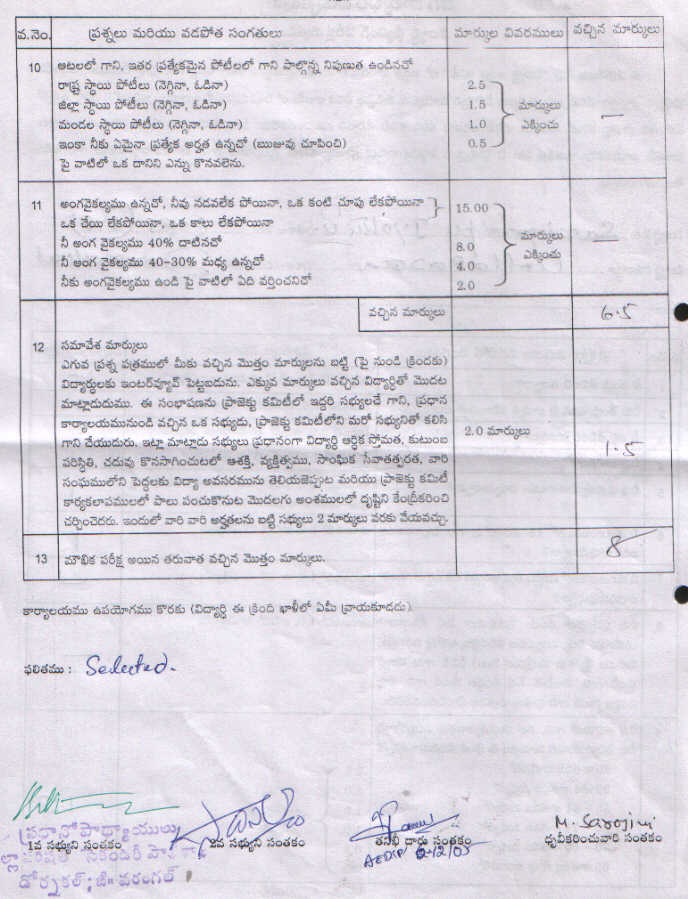 వ.నెం. ప్రశ్నలు మరియు వడపోత సంగతులు మార్కుల వివరములు వచ్చిన మార్కులు
10 ఆటలలో గాని, ఇతర ప్రత్యేకమైన పోటీలలో గాని పాల్గొన్న నిపుణత ఉండినచో
రాష్ట్ర స్థాయి పోటీలు (నెగ్గినా, ఓడినా) 2.5
జిల్లా స్థాయి పోటీలు (నెగ్గినా, ఓడినా) 1.5 మార్కులు —
మండల స్థాయి పోటీలు (నెగ్గినా, ఓడినా) 1.0 ఎక్కించు
ఇంకా నీకు ఏమైనా ప్రత్యేక అర్హత ఉన్నచో (ఋజువు చూపించి) 0.5
పై వాటిలో ఒక దానిని ఎన్ను కొనవలెను.
11 అంగవైకల్యము ఉన్నచో, నీవు నడవలేక పోయినా, ఒక కంటి చూపు లేకపోయినా 15.00
ఒక చేయి లేకపోయినా, ఒక కాలు లేకపోయినా
నీ అంగ వైకల్యము 40% దాటినచో 8.0 మార్కులు —
నీ అంగ వైకల్యము 40-30% మధ్య ఉన్నచో 4.0 ఎక్కించు
నీకు అంగవైకల్యము ఉండి పై వాటిలో ఏది వర్తించనిచో 2.0
వచ్చిన మార్కులు 6.5
12 సమావేశ మార్కులు
ఎగువ ప్రశ్న పత్రములో మీకు వచ్చిన మొత్తం మార్కులను బట్టి (పై నుండి క్రిందకు)
విద్యార్థులకు ఇంటర్వ్యూవ్ పెట్టబడును. ఎక్కువ మార్కులు వచ్చిన విద్యార్థితో మొదట
మాట్లాడుదుము. ఈ సంభాషణను ప్రాజెక్టు కమిటీలో ఇద్దరి సభ్యులచే గాని, ప్రధాన
కార్యాలయమునుండి వచ్చిన ఒక సభ్యుడు, ప్రాజెక్టు కమిటీలోని మరో సభ్యునితో కలిసి
గాని చేయుదురు. ఇట్లా మాట్లాడు సభ్యులు ప్రధానంగా విద్యార్థి ఆర్ధిక స్తోమత, కుటుంబ 2.0 మార్కులు
పరిస్థితి, చదువు కొనసాగించుటలో ఆశక్తి, వ్యక్తిత్వము, సాంఘిక సేవాతత్వరత, వారి 1.5
సంఘములోని పెద్దలకు విద్యా అవసరమును తెలియజెప్పుట మరియు ప్రాజెక్టు కమిటీ
కార్యకలాపములలో పాలు పంచుకొనుట మొదలగు అంశములలో దృష్టిని కేంద్రీకరించి
చర్చించెదరు. ఇందులో వారి వారి అర్హతలను బట్టి సభ్యులు 2 మార్కులు వరకు వేయవచ్చు.
13 మౌఖిక పరీక్ష అయిన తరువాత వచ్చిన మొత్తం మార్కులు. 8
కార్యాలయము ఉపయోగము కొరకు (విద్యార్థి ఈ క్రింది ఖాళీలో ఏమీ వ్రాయకూడదు).
ఫలితము : Selected.
ప్రధానోపాధ్యాయులు
1వ సభ్యుని సంతకం 2వ సభ్యుని సంతకం తనిఖీ దారు సంతకం ధృవీకరించువారి సంతకం
M. Sarojini
సెకండరీ
డోర్నకల్; జి॥ వరంగల్